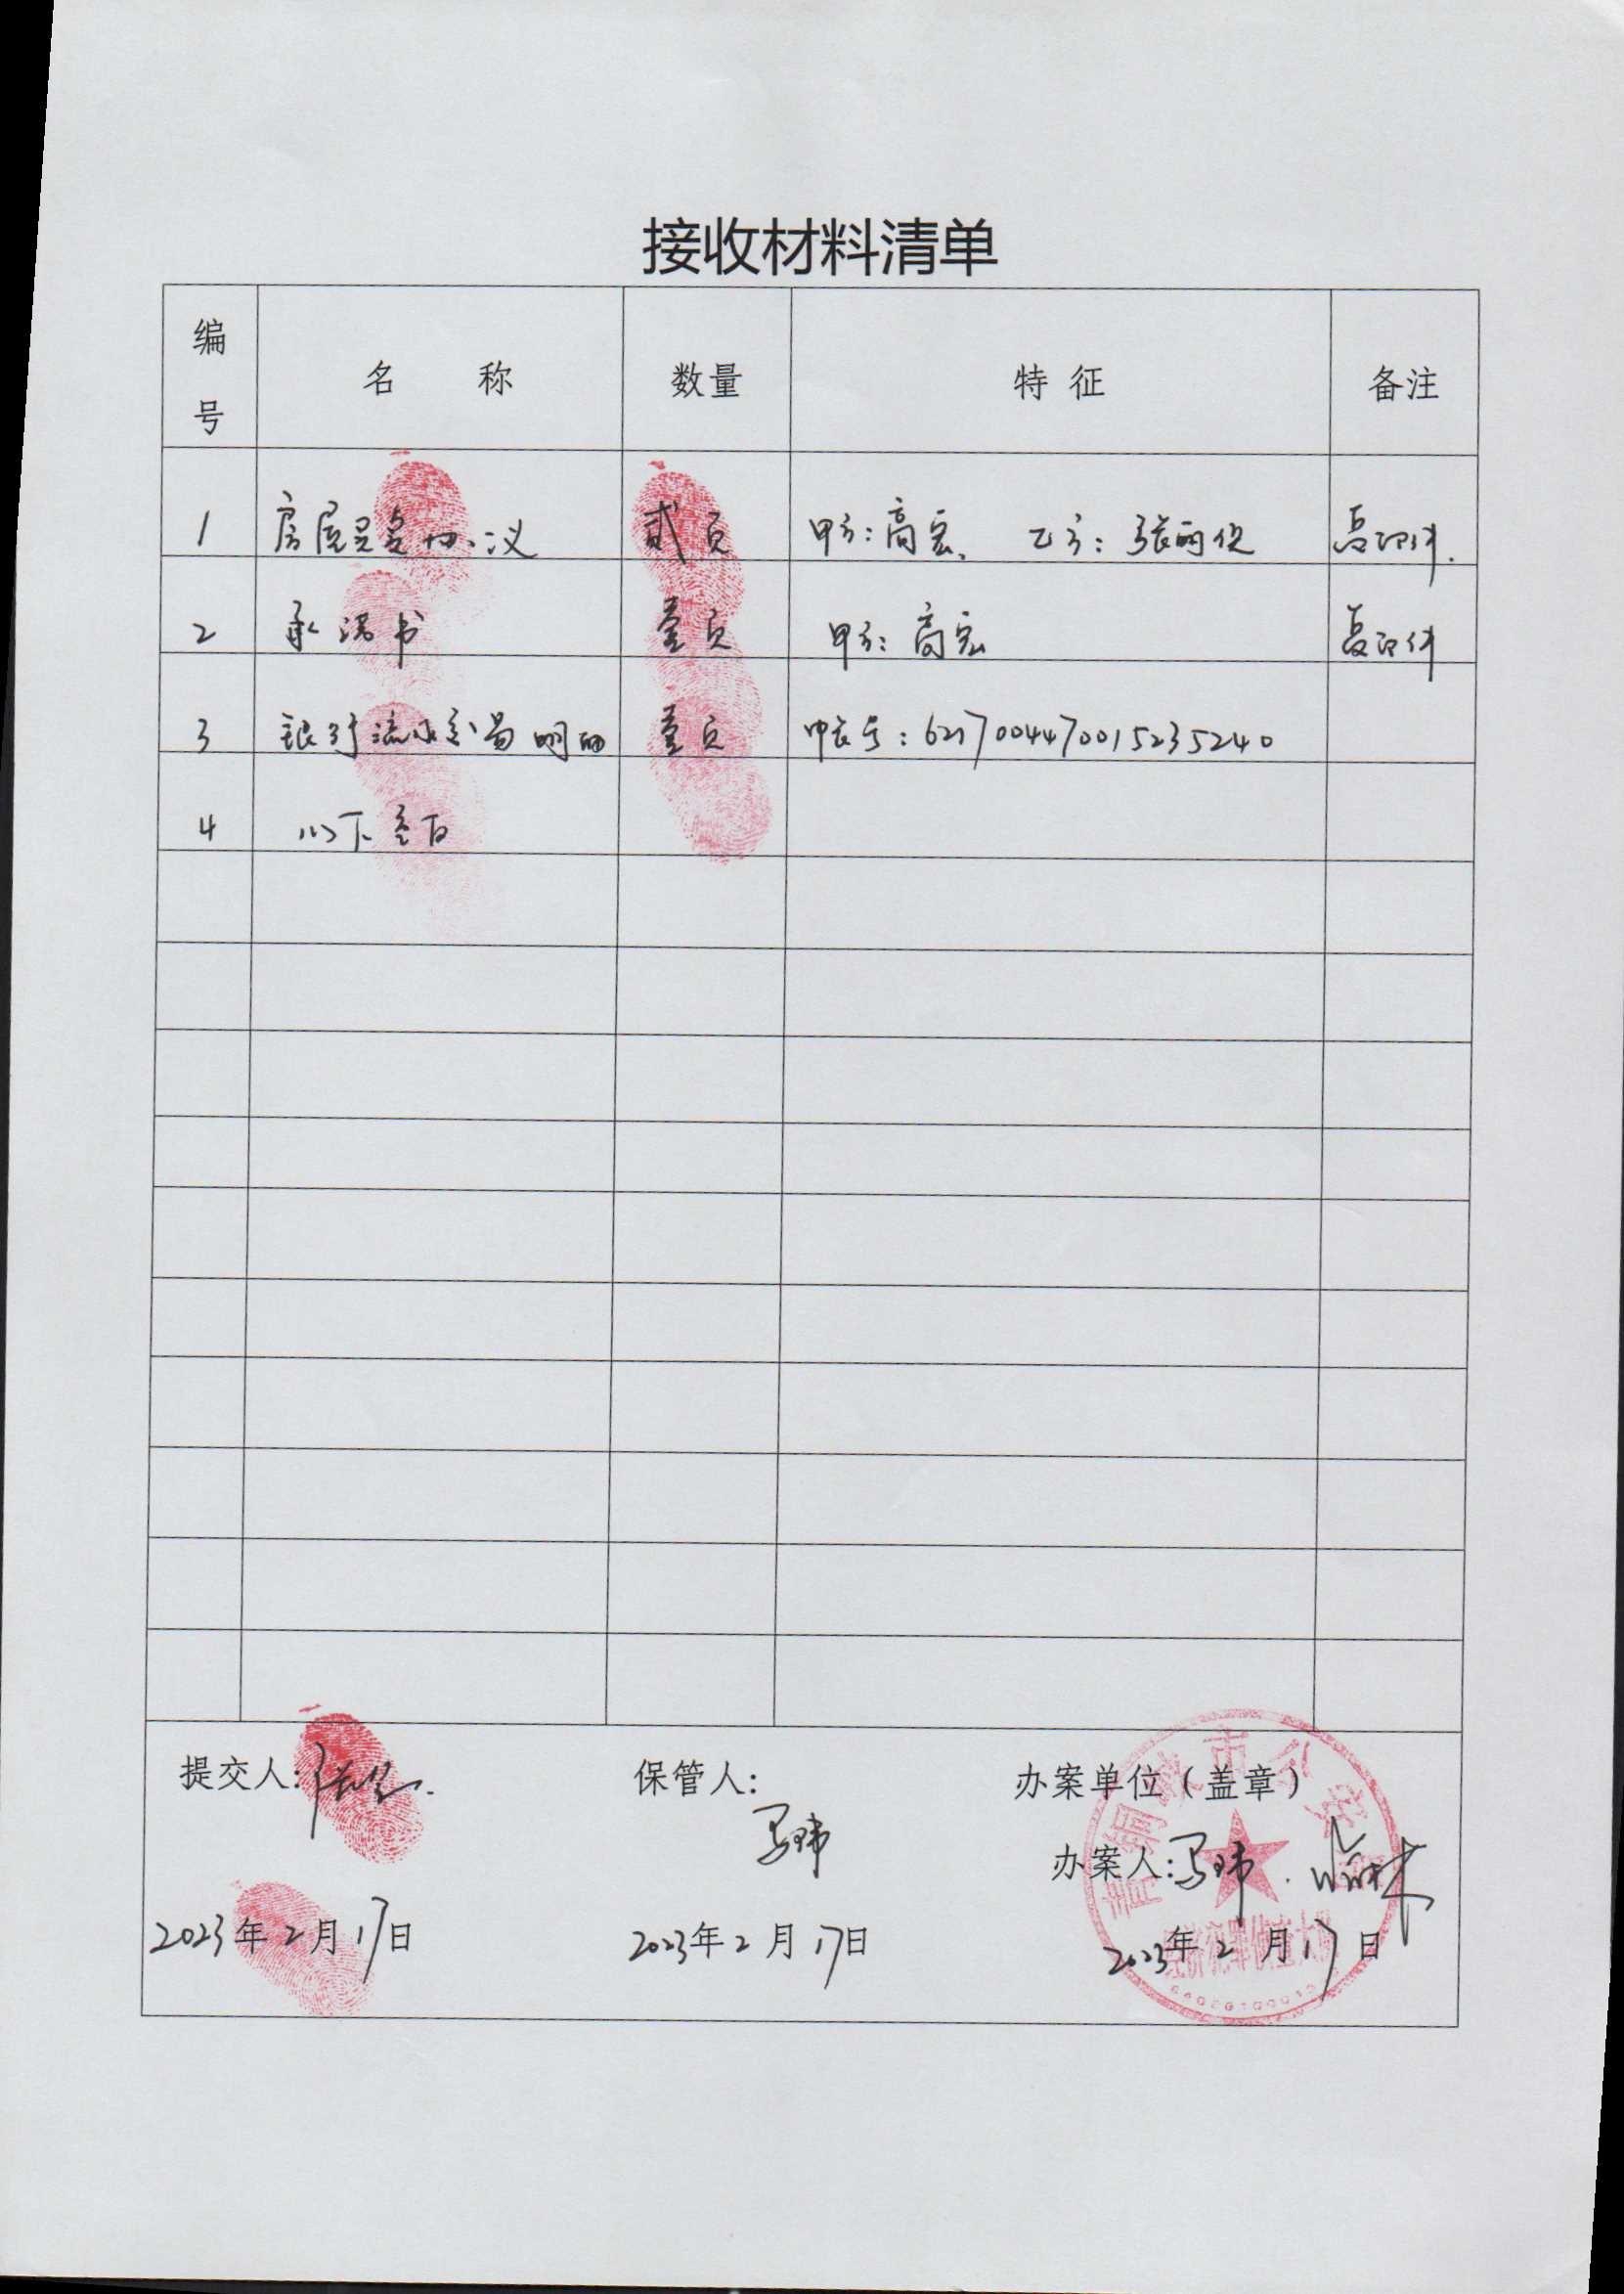 接收材料清单
编号 名 称 数量 特 征 备注
1 房屋买卖协议 贰页 甲方：高宏、 乙方：张丽 复印件.
2 承诺书 壹页 甲方：高宏 复印件
3 银行流水交易明细 壹页 帐号：6217004470015235240
4 以下空白
提交人: 保管人: 办案单位（盖章）
马玮
办案人: 马玮.
2023年2月17日 2023年2月17日 2023年2月17日
青铜峡市公安局
经济犯罪侦查大队